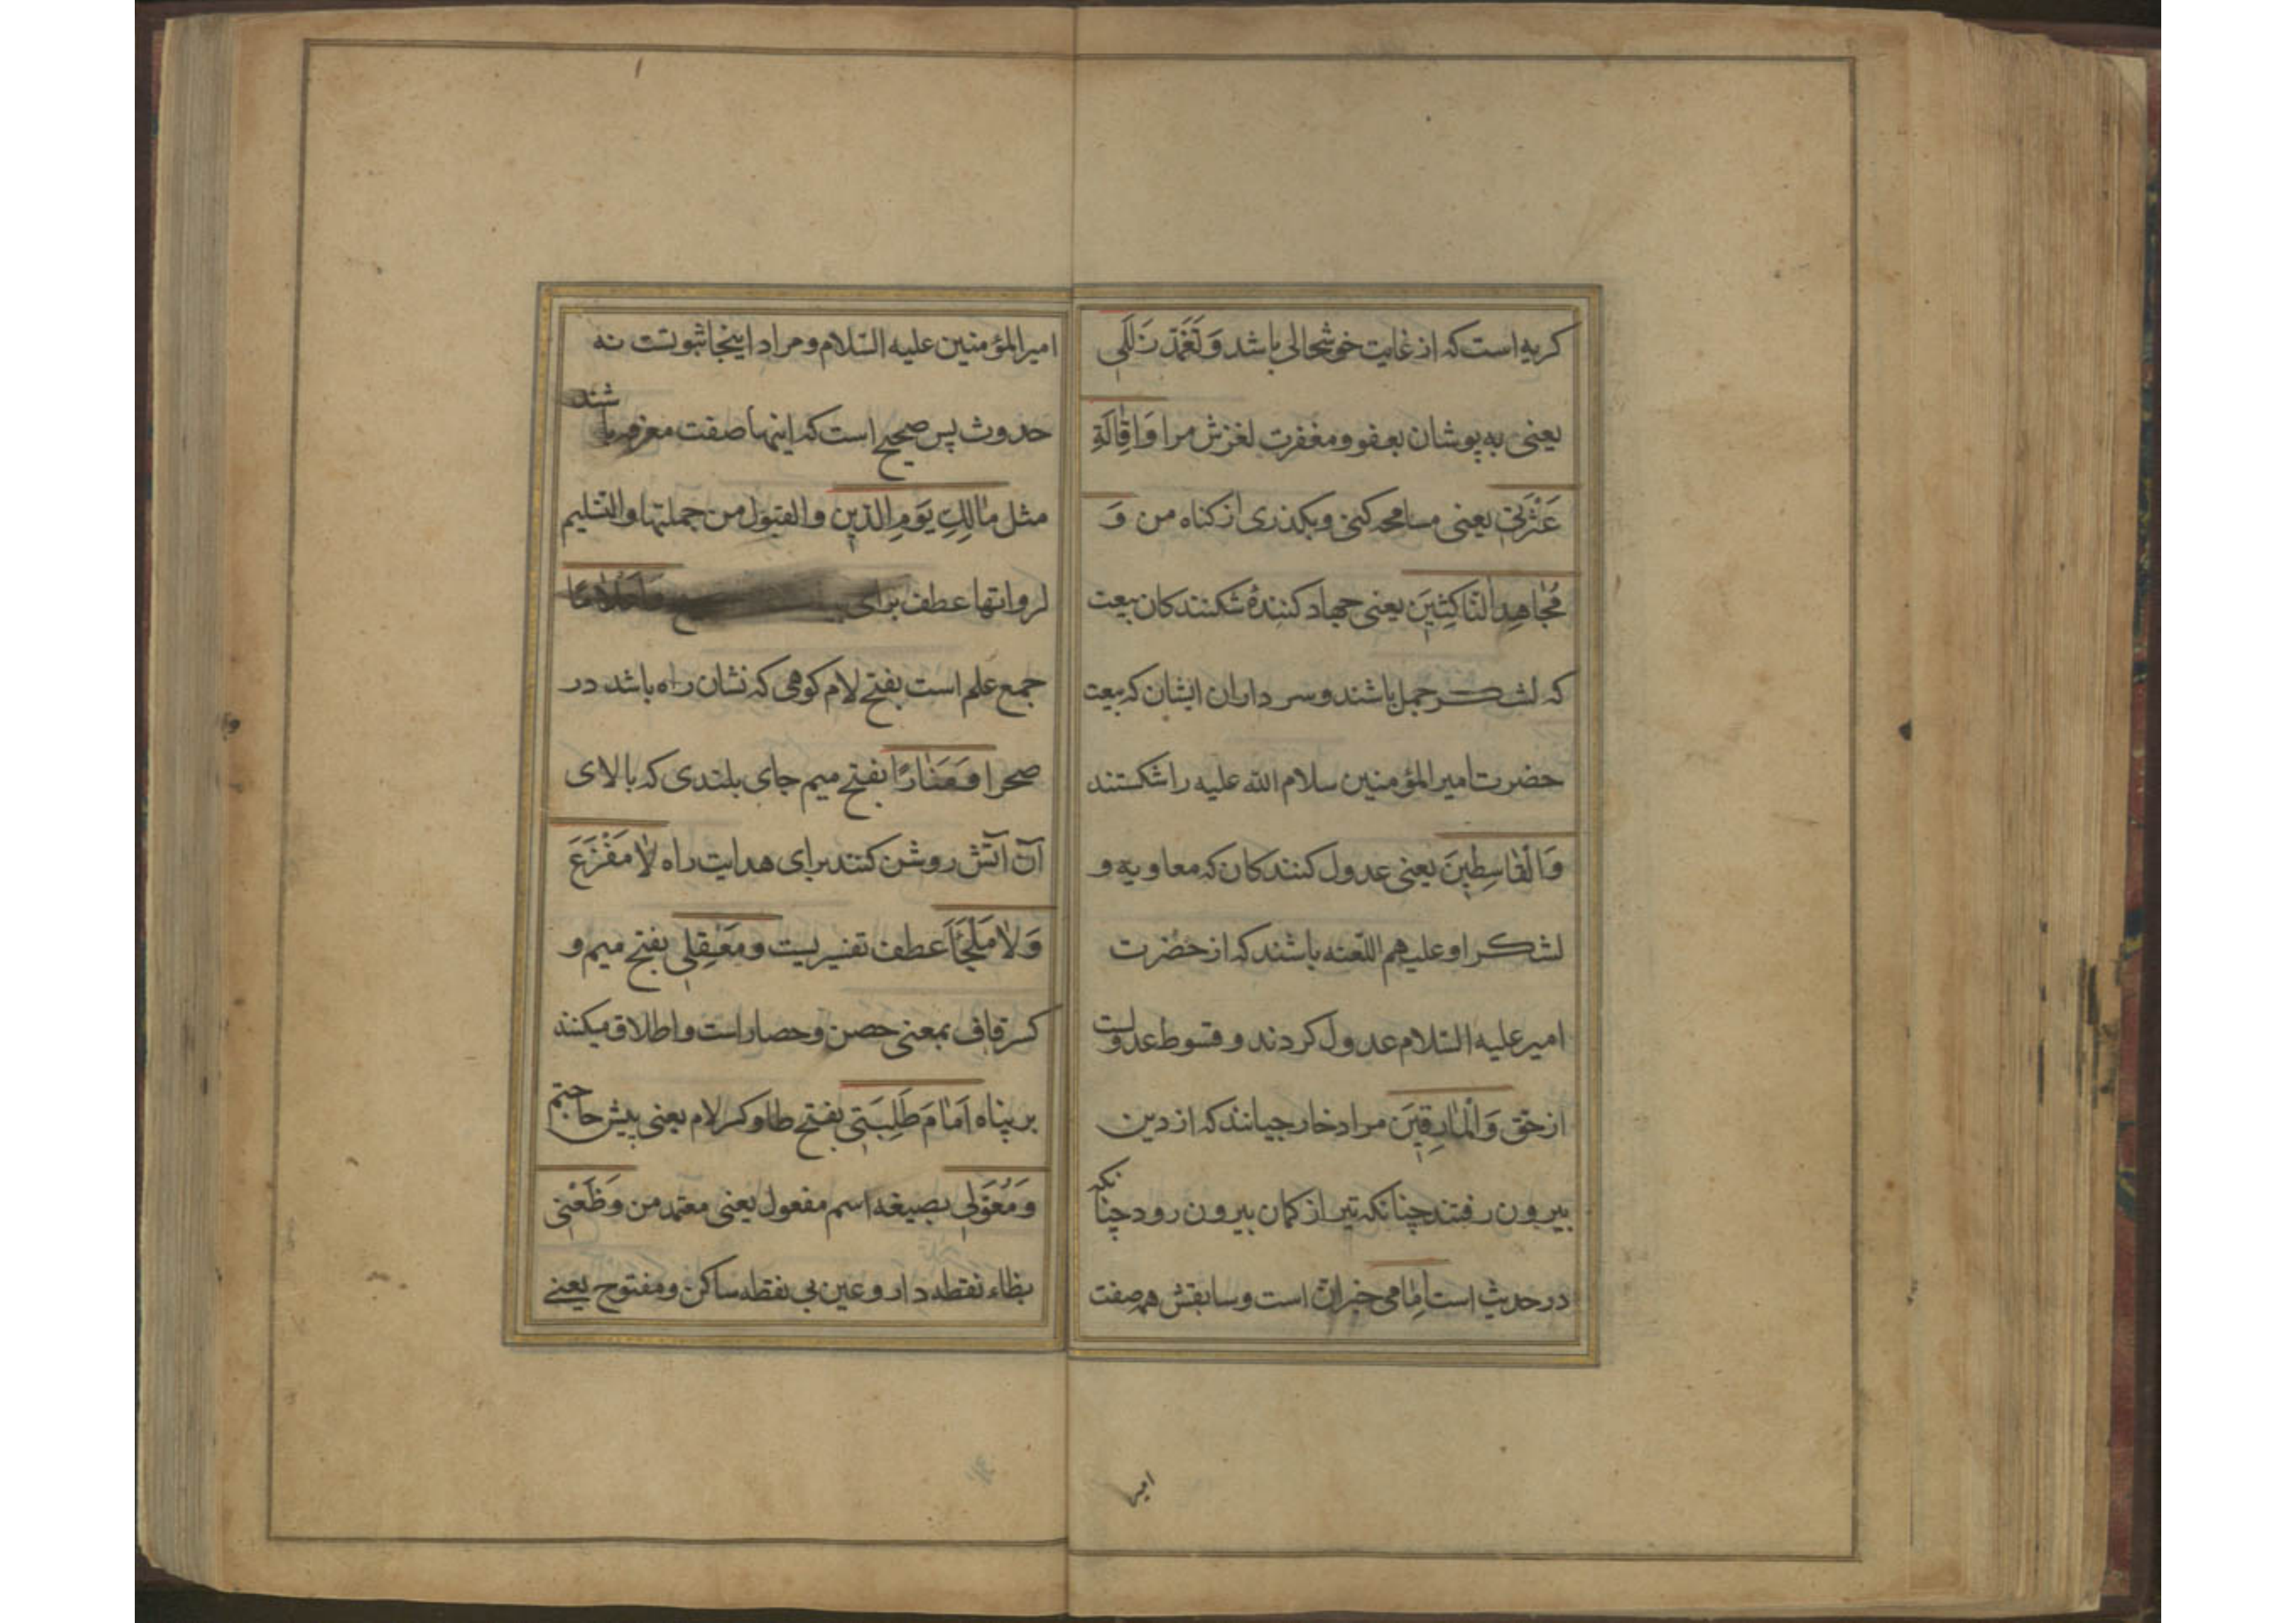 کریه است که از غایت خوشحالی باشد وَتَغَمَّدْ زَلَلَی
یعنی به پوشان بعفو و مغفرت لغزش مرا وَاِقٰالَةِ
عَثْرَتیٖ یعنی مسامحه کنی و بکذری از کناه من وَ
مُجٰاهِدِ النّٰاکِثیٖنَ یعنی جهاد کنندهٔ شکنندکان بیعت
که لشکر جمل باشند و سرداران ایشان که بیعت
حضرت امیرالمؤمنین سلام الله علیه را شکستند
وَالْقٰاسِطیٖنَ یعنی عدول کنندکان که معاویه و
لشکر او علیهم اللعنه باشند که از حضرت
امیر علیه السّلام عدول کردند و قسوط عدولست
از حق وَالْمٰارِقیٖنَ مراد خارجیانند که از دین
بیرون رفتند چنانکه تیر از کمان بیرون رود چنانکه
در حدیث است اِمٰامی خبر انّ است و سابقش هم صفت
امیر
امیرالمؤمنین علیه السّلام و مراد اینجا ثبوتست نه
حدوث پس صحیح است که اینها صفت معرفه باشند
مثل مٰالِكِ یَوْمِ الدّیٖنِ والقبول من حملتها والتّسلیم
لرواتها عطف برای وَلٰا عَلَمًا
جمع علم است بفتح لام کوهی که نشان راه باشد در
صحرا وَمَنٰارًا بفتح میم جای بلندی که بالای
آن آتش روشن کنند برای هدایت راه لٰا مَفْزَعَ
وَلٰا مَلْجَأَ عطف تفسیریست و مَعْقِلیٖ بفتح میم و
کسر قاف بمعنی حصن و حصار است و اطلاق میکنند
بر پناه اَمٰامَ طَلِبَتیٖ بفتح طا و کسر لام یعنی پیش حاجتم
وَمُعَوَّلیٖ بصیغه اسم مفعول یعنی معتمد من وَظَعْنیٖ
بظاء نقطه دار و عین بی نقطه ساکن و مفتوح یعنے